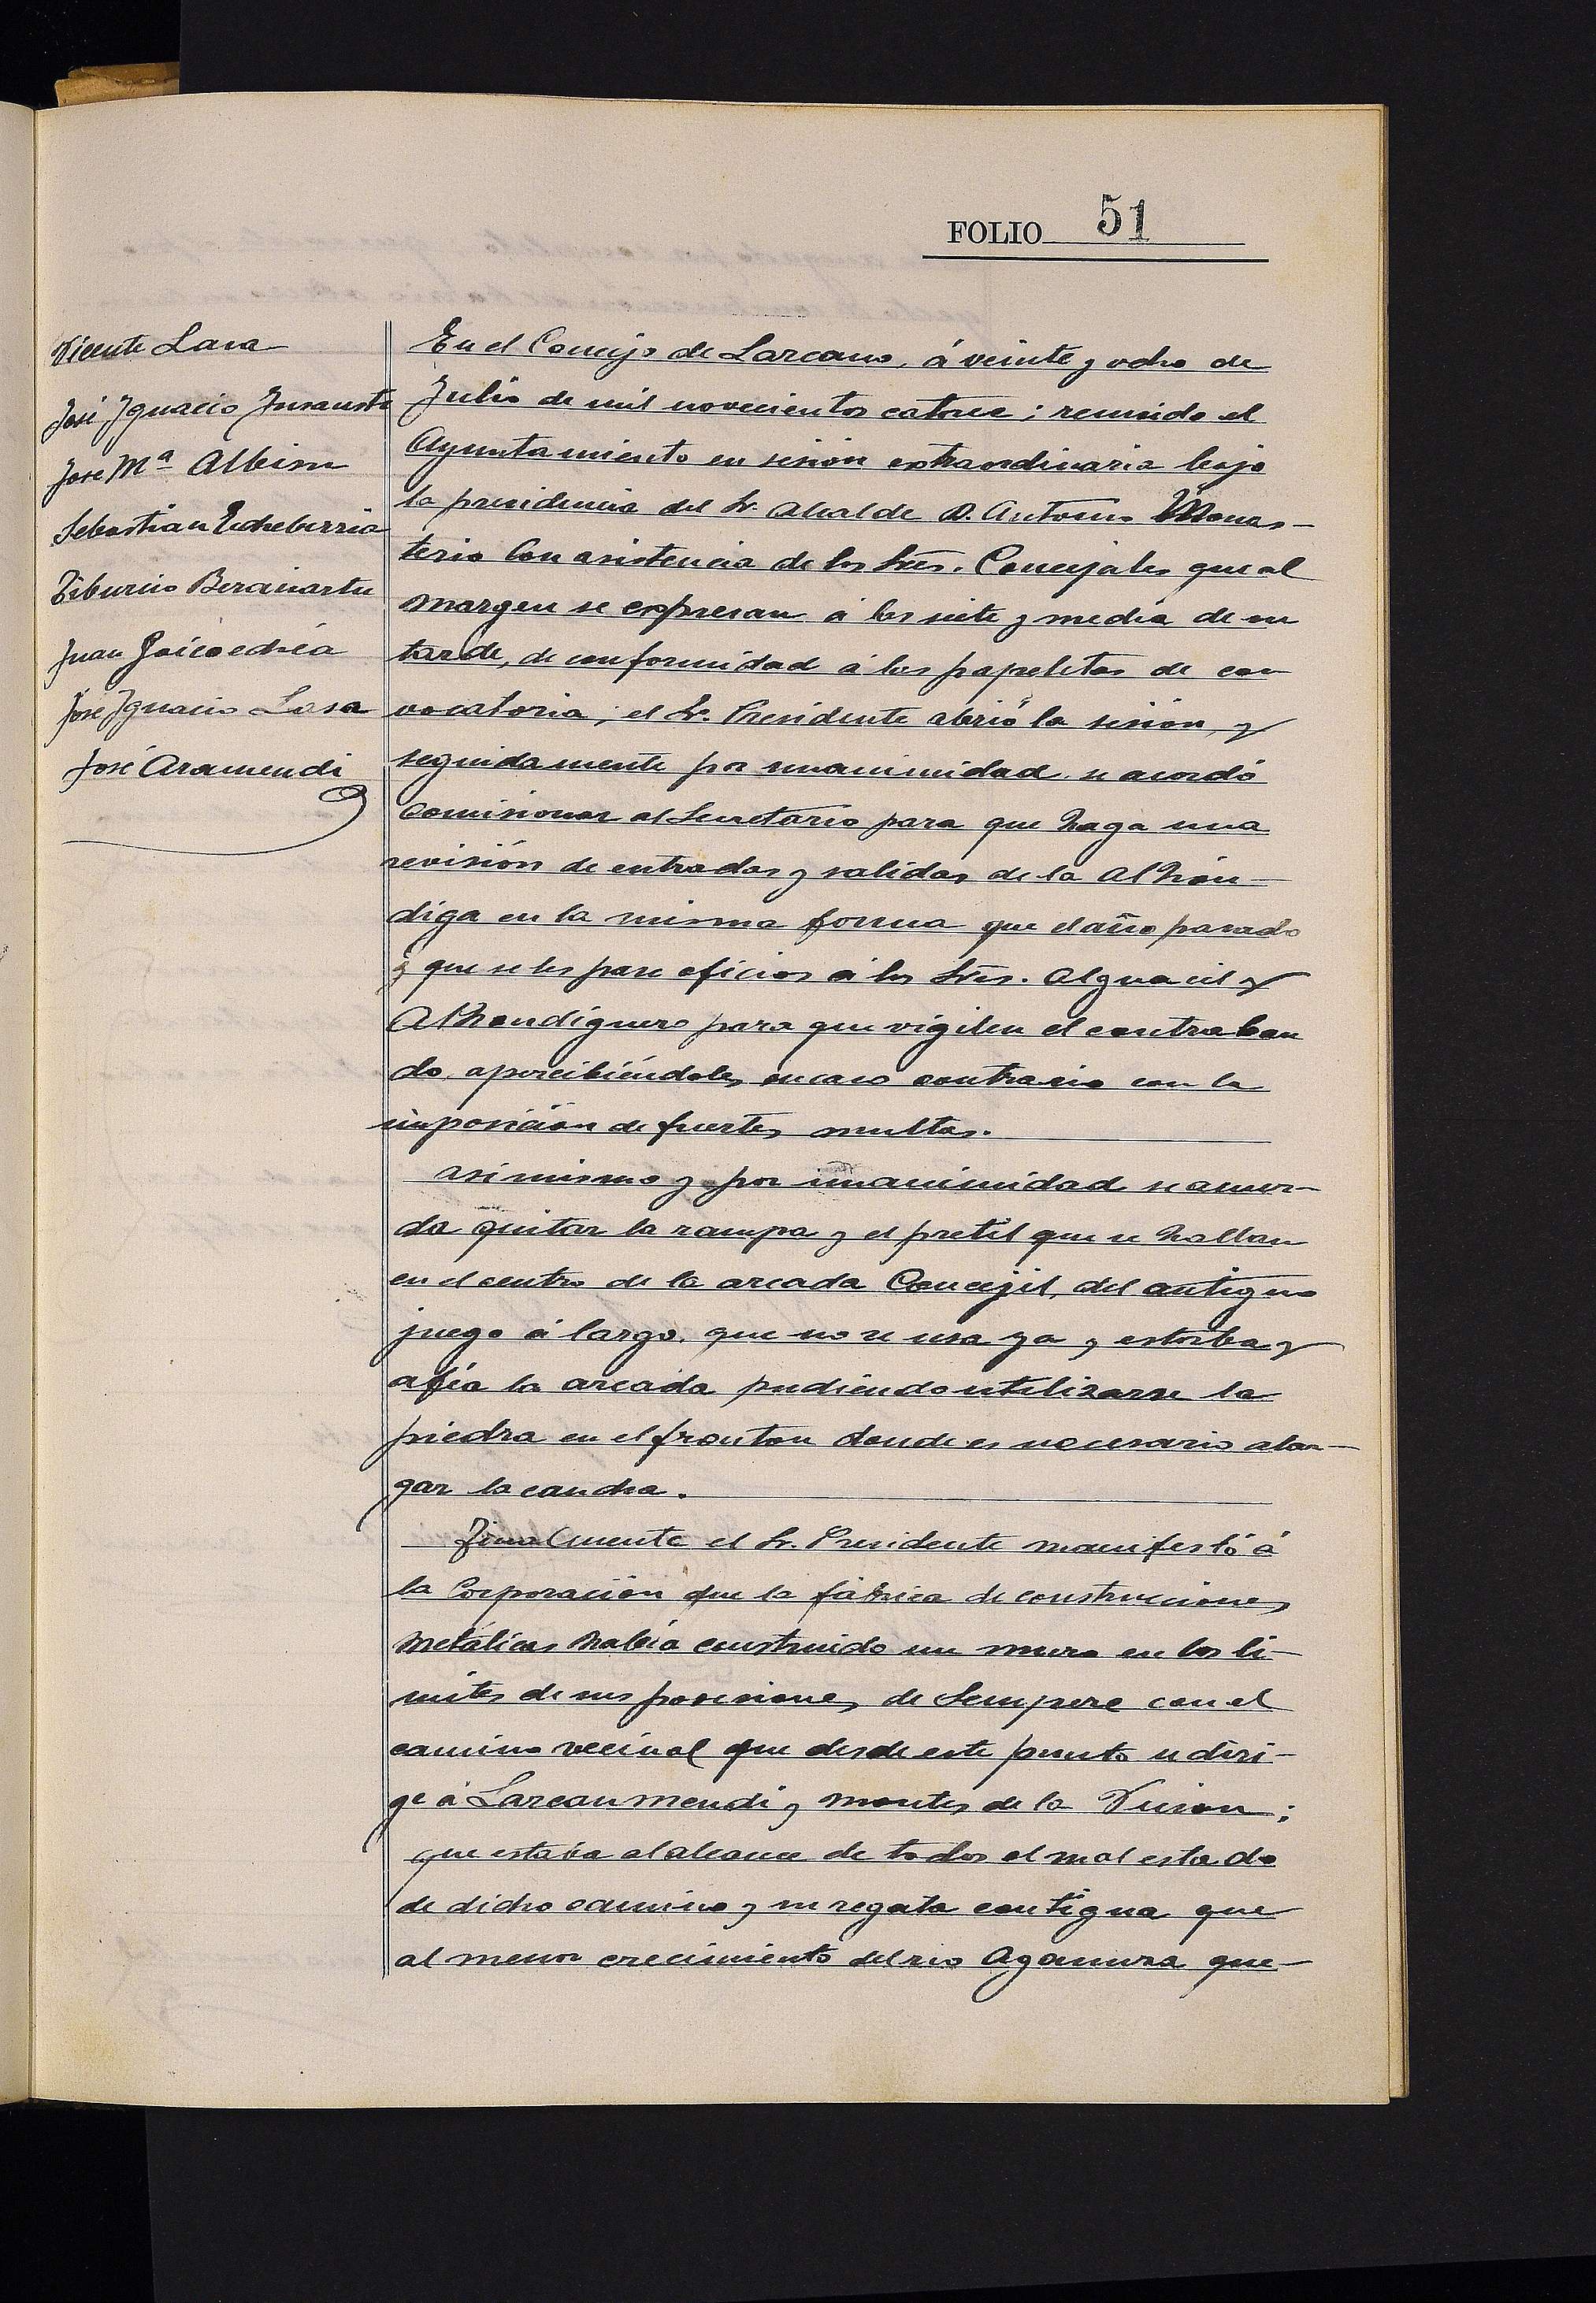 FOLIO 51
Vicente Lasa
José Ignacio Insausti
José Mª Albisu
Sebastian Echeberria
Tiburcio Berasiartu
Juan Goicoechea
José Ignacio Lasa
José Aramendi
En el Concejo de Lazcano, á veinte y ocho de
Julio de mil novecientos catorce; reunido el
Ayuntamiento en sesión extraordinaria bajo
la presidencia del Sr. Alcalde D. Antonio Monas-
terio con asistencia de los Sres. Concejales que al
margen se expresan á las siete y media de su
tarde, de conformidad á las papeletas de con
vocatoria; el Sr. Presidente abrió la sesión, y
seguidamente por unanimidad se acordó
comisionar al Secretario para que haga una
revisión de entradas y salidas de la Alhón-
diga en la misma forma que el año pasado
y que se les pase oficios á los Sres. Alguacil y
Alhondiguero para que vigilen el contraban
do, apercibiéndoles en caso contrario con la
imposición de fuertes multas.
Asimismo y por unanimidad se acuer-
da quitar la rampa y el pretil que se hallan
en el centro de la arcada Concejil, del antiguo
juego á largo, que no se usa ya y estorba y
afea la arcada pudiendo utilizarse la
piedra en el fronton donde es necesario alar-
gar la cancha.
Finalmente el Sr. Presidente manifestó á
la Corporación que la fábrica de construcciones
metálicas había construido un muro en los li-
mites de sus posesiones de Sempere con el
camino vecinal que desde este punto se diri-
ge á Lazcaumendi y montes de la Union;
que estaba al alcance de todos el mal estado
de dicho camino y su regata contigua que
al menor crecimiento del rio Agaunza que-